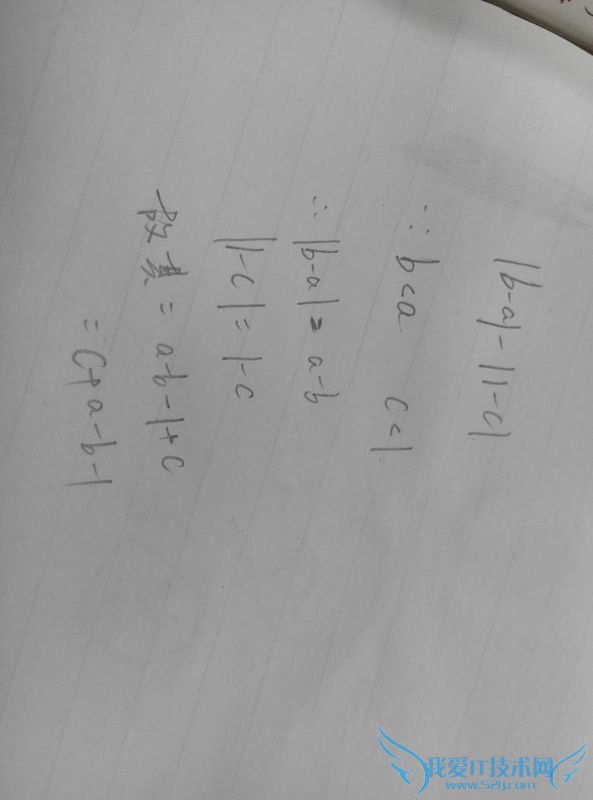 |b-a|-|1-c|
∵ b<a   c<1
∴ |b-a|= a-b
|1-c|= 1-c
= a-b-1+c
= c+a-b-1
我爱IT技术网
www.52ij.com